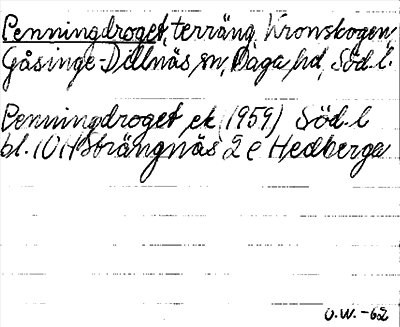 Penningdroget, terräng, Kronskogen,
Gåsinge-Dillnäs sn, Daga hd, Söd. l.
Penningdroget ek (1959) Söd. l
bl. 10H Strängnäs 2 e Hedberga
O.W. -62